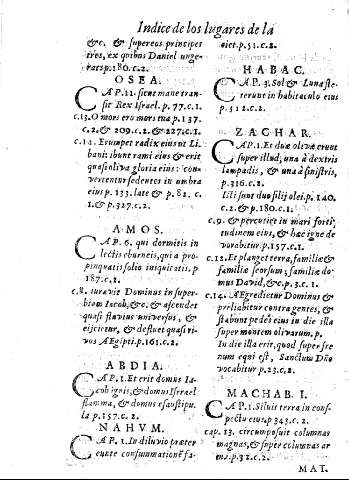 Indice de los lugares de la
&c. & supereos principes
tres, ex quibus Daniel unge-
rat p. 180. c. 2.
OSEA.
CAP. 11. sicut mane tran-
sit Rex Israel. p. 77. c. 1.
c. 13. O mors ero mors tua p. 137.
c. 2. & 209. c. 2. & 227. c. 1.
c. 14. Erumpet radix eius ut Li-
bani: ibunt rami eius & erit
quasi oliva gloria eius: con-
vertentur sedentes in umbra
eius p. 133. late & p. 82. c.
1. & p. 327. c. 2.
AMOS.
CAP. 6. qui dormitis in
lectis eburneis, qui a pro-
pinquatis solio iniquitatis. p
187. c. 2.
c. 8. iuravit Dominus in super-
biam Iacob, &c. & ascendet
quasi fluvius universus, &
eijcietur, & defluet quasi ri-
vos AEgipti. p. 161. c. 2.
ABDIA.
CAP. 1. Et erit domus Ia-
cob ignis, & domus Israel
flamma, & domus esau stipu-
la p. 157. c. 2.
NAHVM.
CAP. 1. In diluvio præter
eunte consummationẽ fa-
ciet p. 51. c. 2.
HABAC.
CAP. 3. Sol & Luna ste-
terunt in habitaculo eius
p. 512. c. 2.
ZACHAR.
CAP. 1. Et duæ olivæ erunt
super illud; una à dextris
lampadis, & una à sinistris,
p. 316. c. 2.
Isti sunt duo filij olei. p. 140.
c. 2. & p. 180. c. 1.
c. 9. & percutiet in mari forti-
tudinem eius, & hæc igne de-
vorabitur. p. 157. c. 1.
c. 12. Et planget terra, familiæ &
familiæ seorsum; familiæ do-
mus David, &c. p. 3. c. 1.
c. 14. AEgredietur Dominus &
præliabitur contra gentes, &
stabunt pedes eius in die illa
super montem olivarum. p.
In die illa erit, quod super fre
num equi est, Sanctum Dño
vocabitur p. 23. c. 2.
MACHAB. I.
CAP. 1. Siluit terra in cons-
pectu eius. p 343. c. 2.
cap. 13. circumposuit columnas
magnas, & super columnas ar
ma. p. 32. c. 2.
MAT.